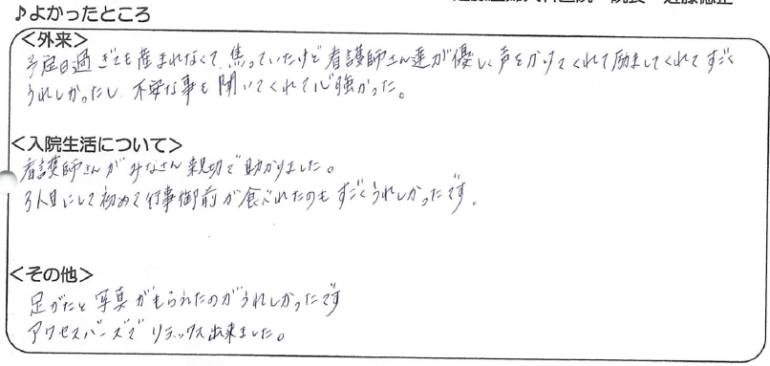 ♪よかったところ
<外来>
予定日過ぎても産まれなくて、焦っていたけど看護師さん達が優しく声をかけてくれて励ましてくれてすごく
うれしかったし、不安な事も聞いてくれて心強かった。
<入院生活について>
看護師さんがみなさん親切で助かりました。
3人目にして初めて行事御前が食べれたのもすごくうれしかったです。
<その他>
足がたと写真がもらえたのがうれしかったです
アクセスバーズでリラックス出来ました。